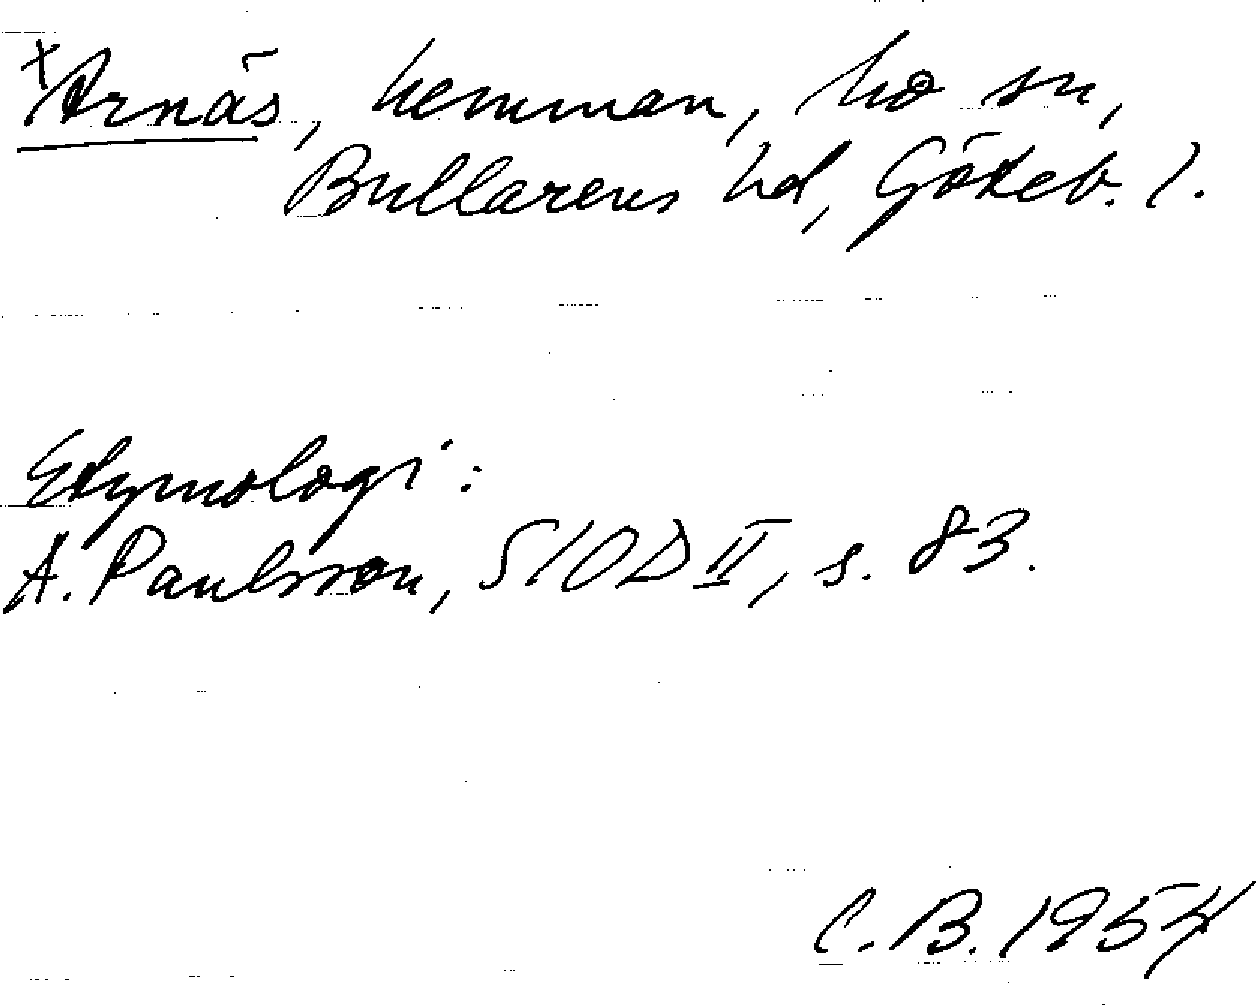 +Arnäs, hemman, Mo sn,
Bullarens hd, Göteb. l.
Etymologi:
A. Paulsson, SIOD II, s. 83.
C. B. 1954